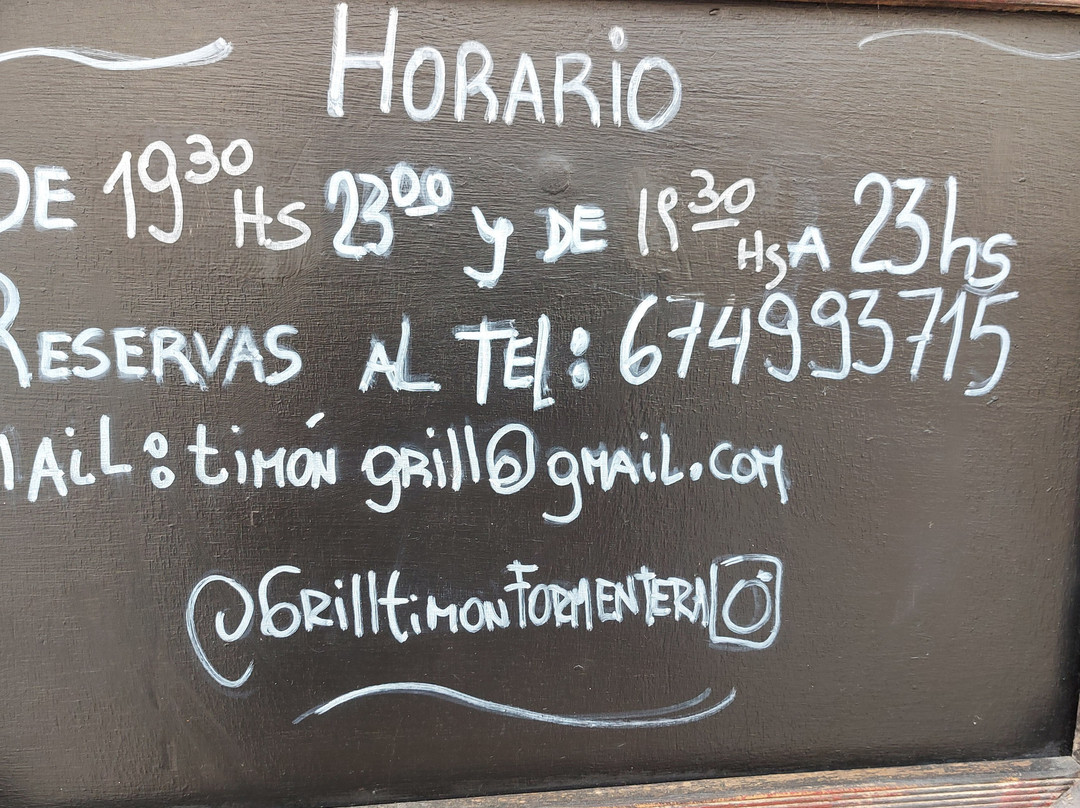 HORARIO
DE 19³⁰ HS 23⁰⁰ y DE 19³⁰ HS A 23hs
RESERVAS AL TEL: 674993715
MAiL: timón grill@gmail.com
@GRilltimonFORMENTERA